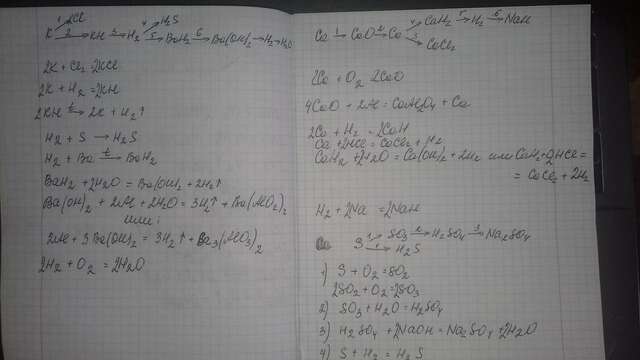 K 1→ KCl
2→ KH 3→ H2 4→ H2S
5→ BaH2 6→ Ba(OH)2 → H2 → H2O
2K + Cl2 = 2KCl
2K + H2 = 2KH
2KH t→ 2K + H2↑
H2 + S → H2S
H2 + Ba t→ BaH2
BaH2 + 2H2O = Ba(OH)2 + 2H2↑
Ba(OH)2 + 2Al + 2H2O = 3H2↑ + Ba(AlO2)2
или:
2Al + 3Ba(OH)2 = 3H2↑ + Ba3(AlO3)2
2H2 + O2 = 2H2O
Ca 1→ CaO 2→ Ca 4→ CaH2 5→ H2 6→ NaH
3→ CaCl2
2Ca + O2 = 2CaO
4CaO + 2Al = CaAl2O4 + Ca
2Ca + H2 = 2CaH
Ca + 2HCl = CaCl2 + H2
CaH2 + 2H2O = Ca(OH)2 + 2H2 или CaH2 + 2HCl =
= CaCl2 + 2H2
H2 + 2Na = 2NaH
S 1→ SO3 2→ H2SO4 3→ Na2SO4
→ H2S
1) S + O2 = SO2
2SO2 + O2 = 2SO3
2) SO3 + H2O = H2SO4
3) H2SO4 + 2NaOH = Na2SO4 + 2H2O
4) S + H2 = H2S